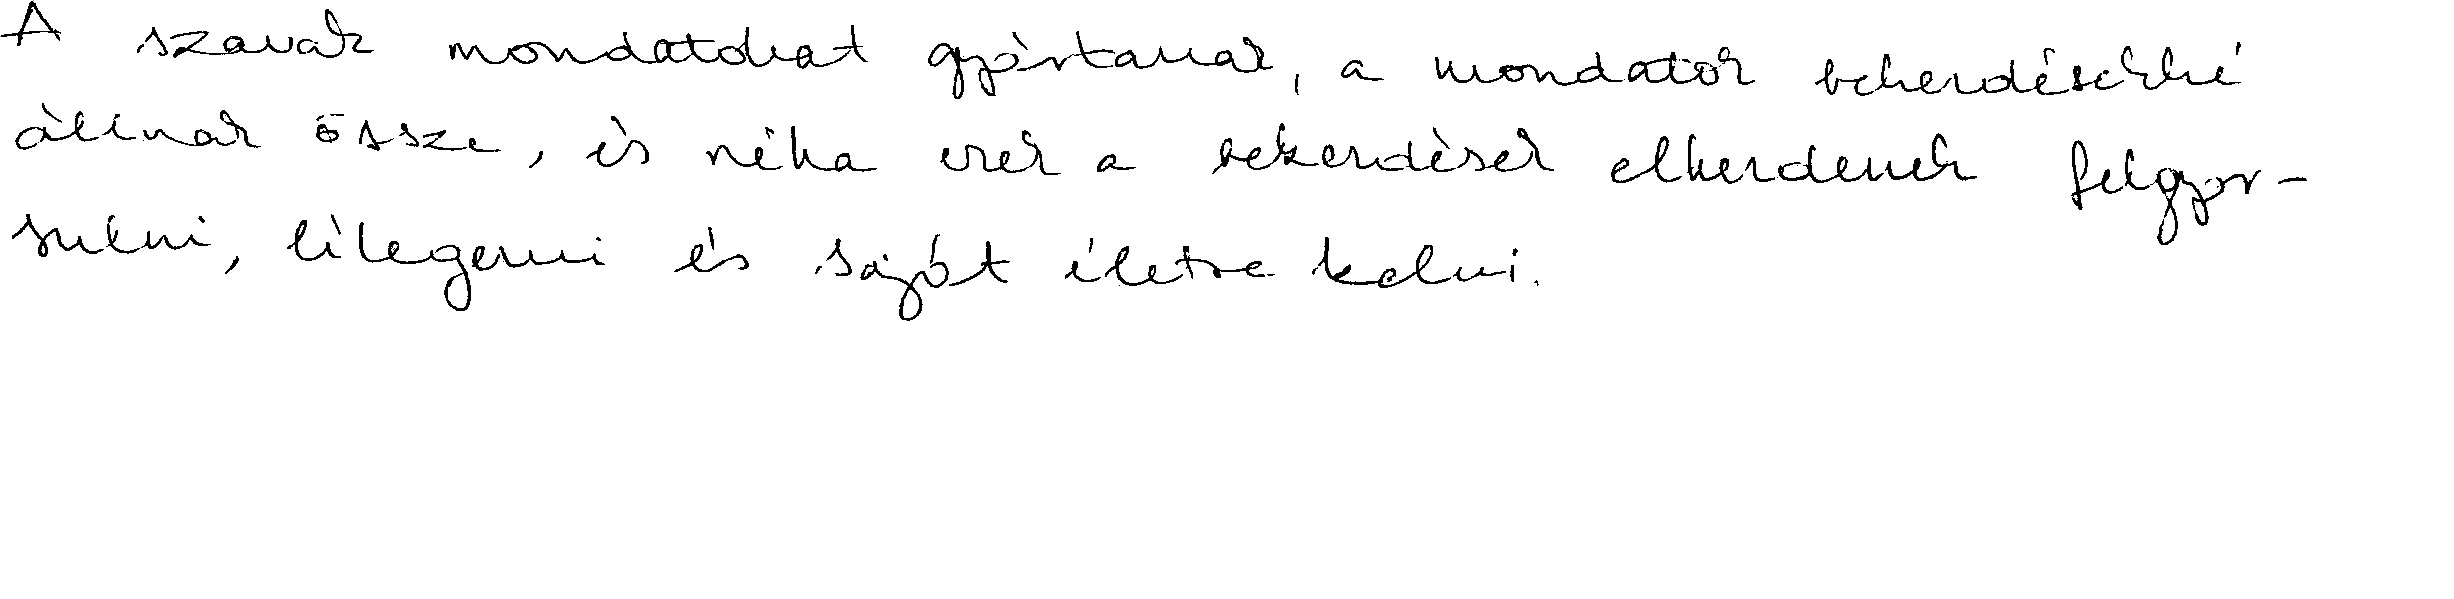 A szavak mondatokat gyártanak, a mondatok bekezdésekké
állnak össze, és néha ezek a bekezdések elkezdenek felgyor-
sulni, lélegezni és saját életre kelni.